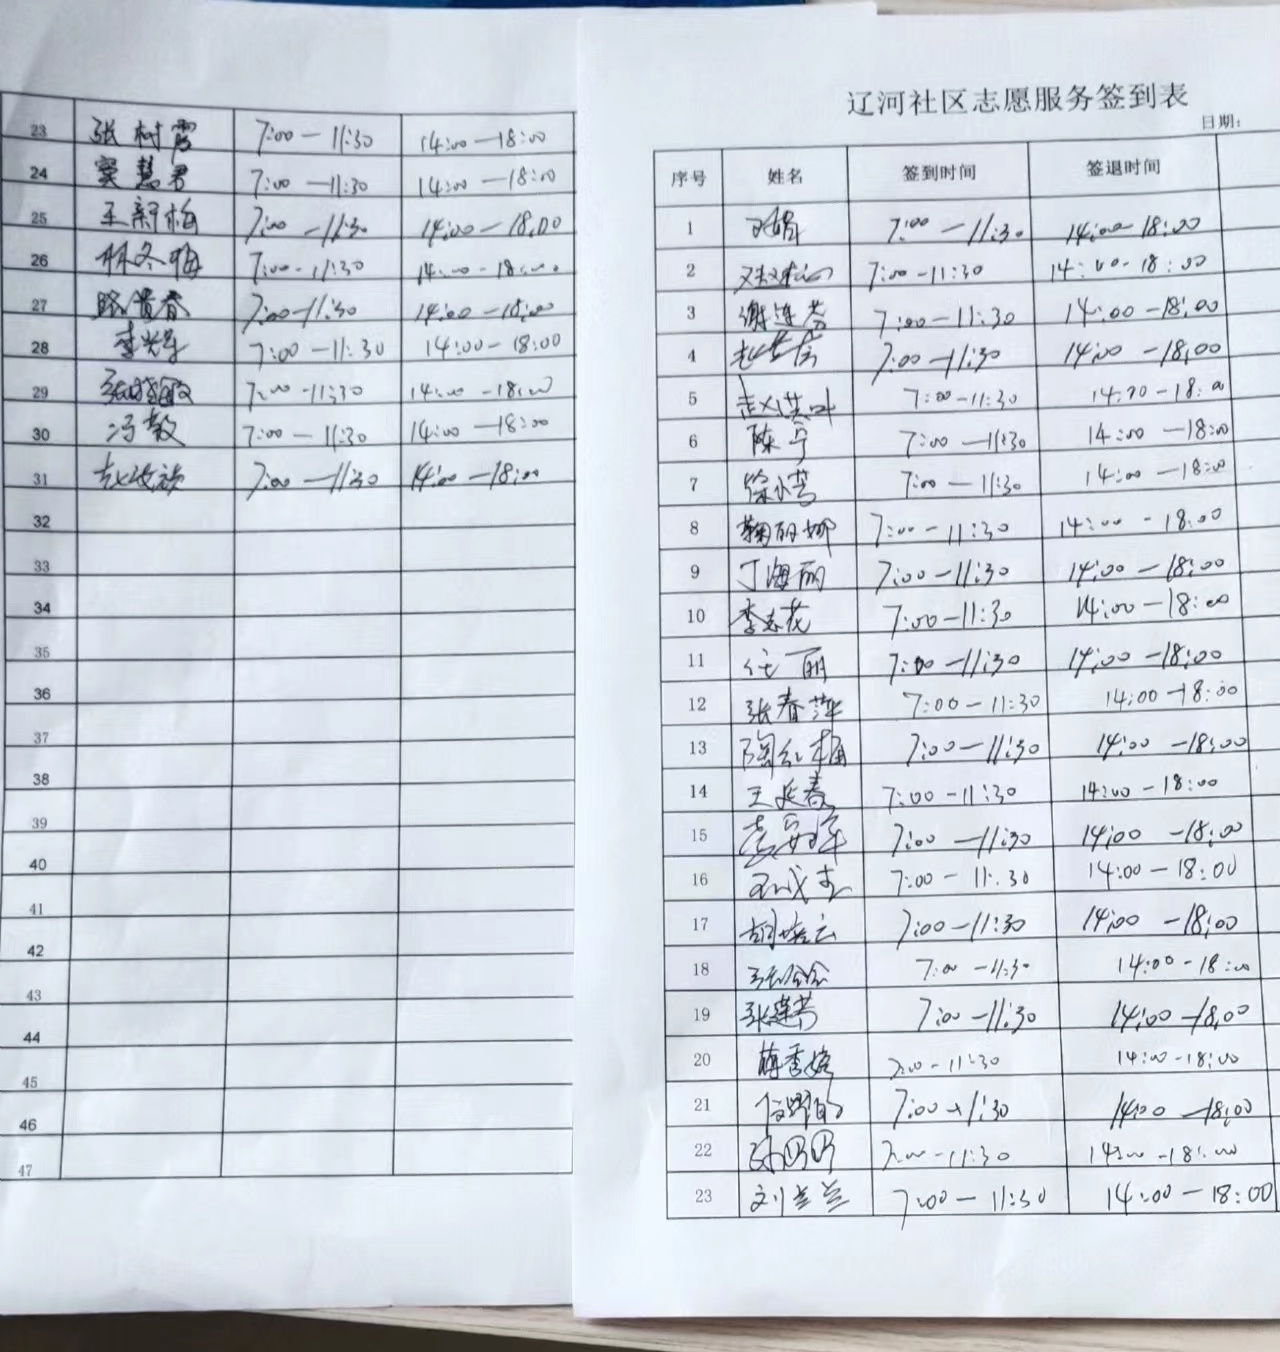 23 张树霞 7:00—11:30 14:00—18:00
24 窦慧君 7:00—11:30 14:00—18:00
25 王新梅 7:00—11:30 14:00—18:00
26 林冬梅 7:00-11:30 14:00-18:00
27 7:00—11:30 14:00-18:00
28 7:00—11:30 14:00-18:00
29 7:00-11:30 14:00-18:00
30 冯毅 7:00—11:30 14:00—18:00
31 7:00—11:30 14:00—18:00
32
33
34
35
36
37
38
39
40
41
42
43
44
45
46
47
辽河社区志愿服务签到表
日期:
序号 姓名 签到时间 签退时间
1 7:00—11:30 14:00-18:00
2 7:00-11:30 14:00-18:00
3 谢连芳 7:00—11:30 14:00-18:00
4 7:00—11:30 14:00-18:00
5 7:00-11:30 14:00-18:00
6 陈宁 7:00—11:30 14:00-18:00
7 7:00—11:30 14:00-18:00
8 鞠丽娜 7:00-11:30 14:00-18:00
9 丁海丽 7:00—11:30 14:00-18:00
10 李志花 7:00-11:30 14:00-18:00
11 任丽 7:00—11:30 14:00-18:00
12 张春萍 7:00-11:30 14:00-18:00
13 陶红梅 7:00—11:30 14:00-18:00
14 王延春 7:00-11:30 14:00-18:00
15 7:00—11:30 14:00-18:00
16 7:00-11:30 14:00-18:00
17 7:00—11:30 14:00-18:00
18 7:00-11:30 14:00-18:00
19 张莲芳 7:00—11:30 14:00-18:00
20 7:00-11:30 14:00-18:00
21 7:00-11:30 14:00-18:00
22 7:00-11:30 14:00-18:00
23 刘兰兰 7:00—11:30 14:00—18:00